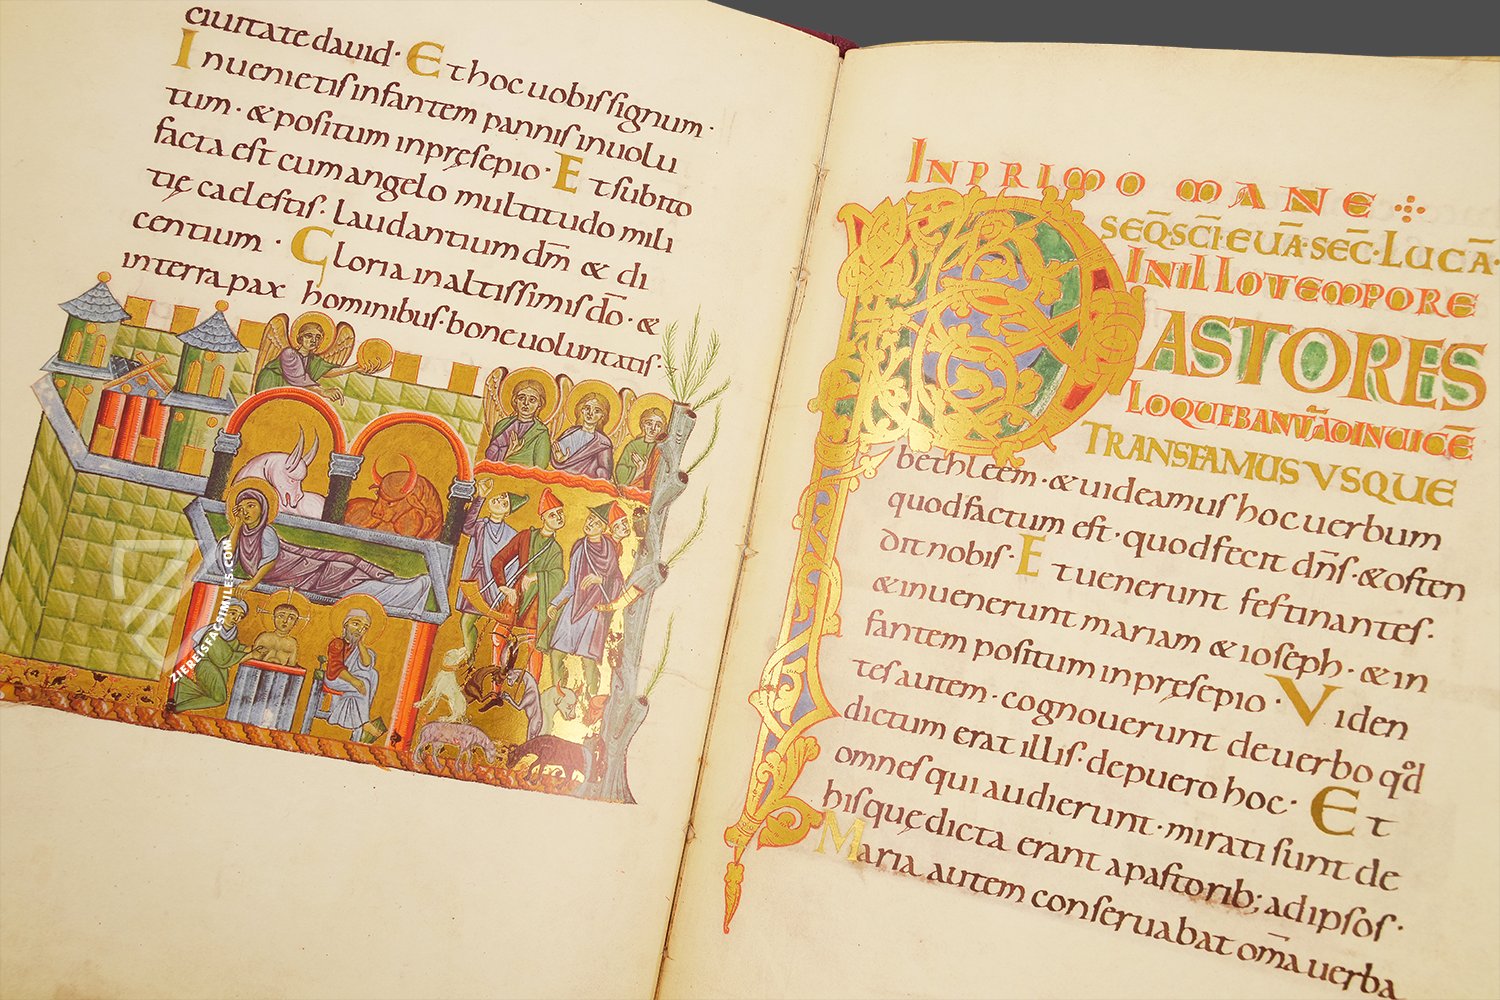 ciuitate dauid · Et hoc uobis signum ·
Inuenietis infantem pannis inuolu
tum · & positum in pręsepio · Et subito
facta est cum angelo multitudo mili
tię caelestis · laudantium dm̄ & di
centium · Gloria in altissimis dō · &
in terra pax hominibus · bonę uoluntatis ·
IN PRIMO MANE
SEQ̄ · SC̄I · EUĀ · SEC̄ · LUCĀ ·
IN ILLO TEMPORE
PASTORES
LOQUEBANTUR AD INUICĒ
TRANSEAMUS VSQUE
bethleem · & uideamus hoc uerbum
quod factum est · quod fecit dn̄s · & osten
dit nobis · Et uenerunt festinantes ·
& inuenerunt mariam & ioseph · & in
fantem positum in pręsepio · Viden
tes autem · cognouerunt de uerbo qd
dictum erat illis · de puero hoc · Et
omnes qui audierunt · mirati sunt de
hisquę dicta erant apastorib; adipsos ·
Maria autem conseruabat om̄a uerba
ZIEREISFACSIMILES.COM